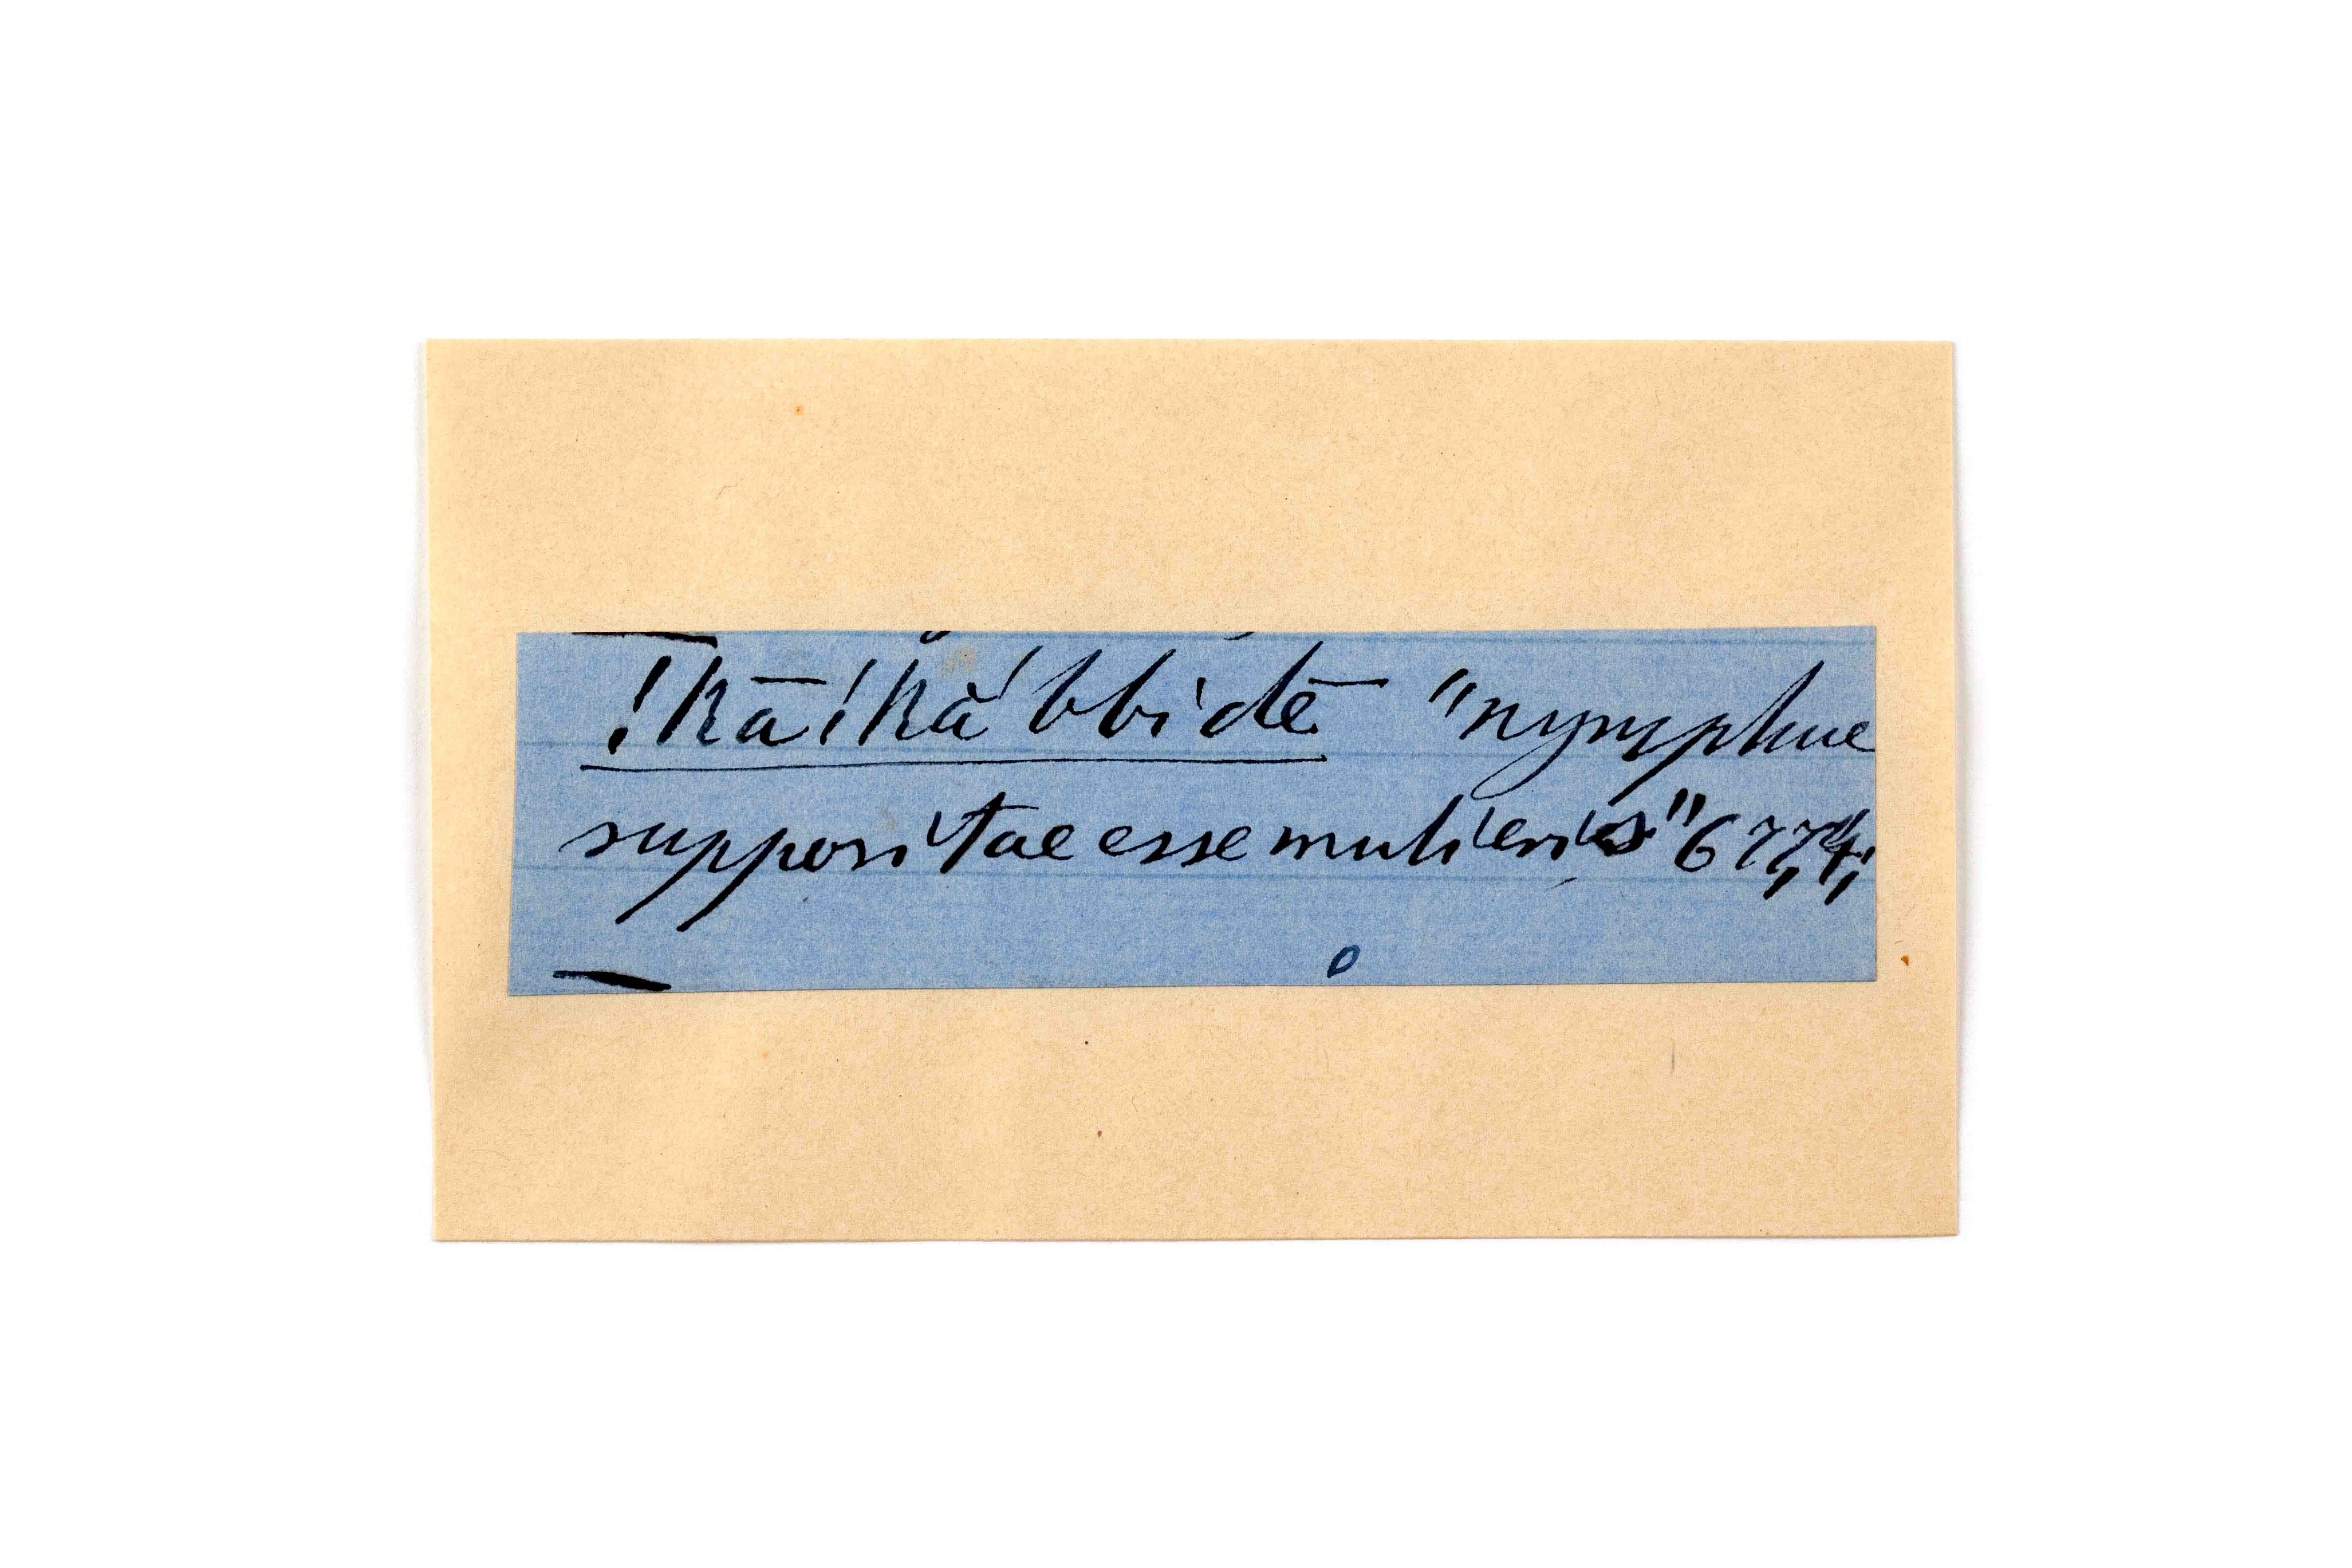 !kā!kắbbi dē "nymphae
suppositae esse mulieris" 677,4;